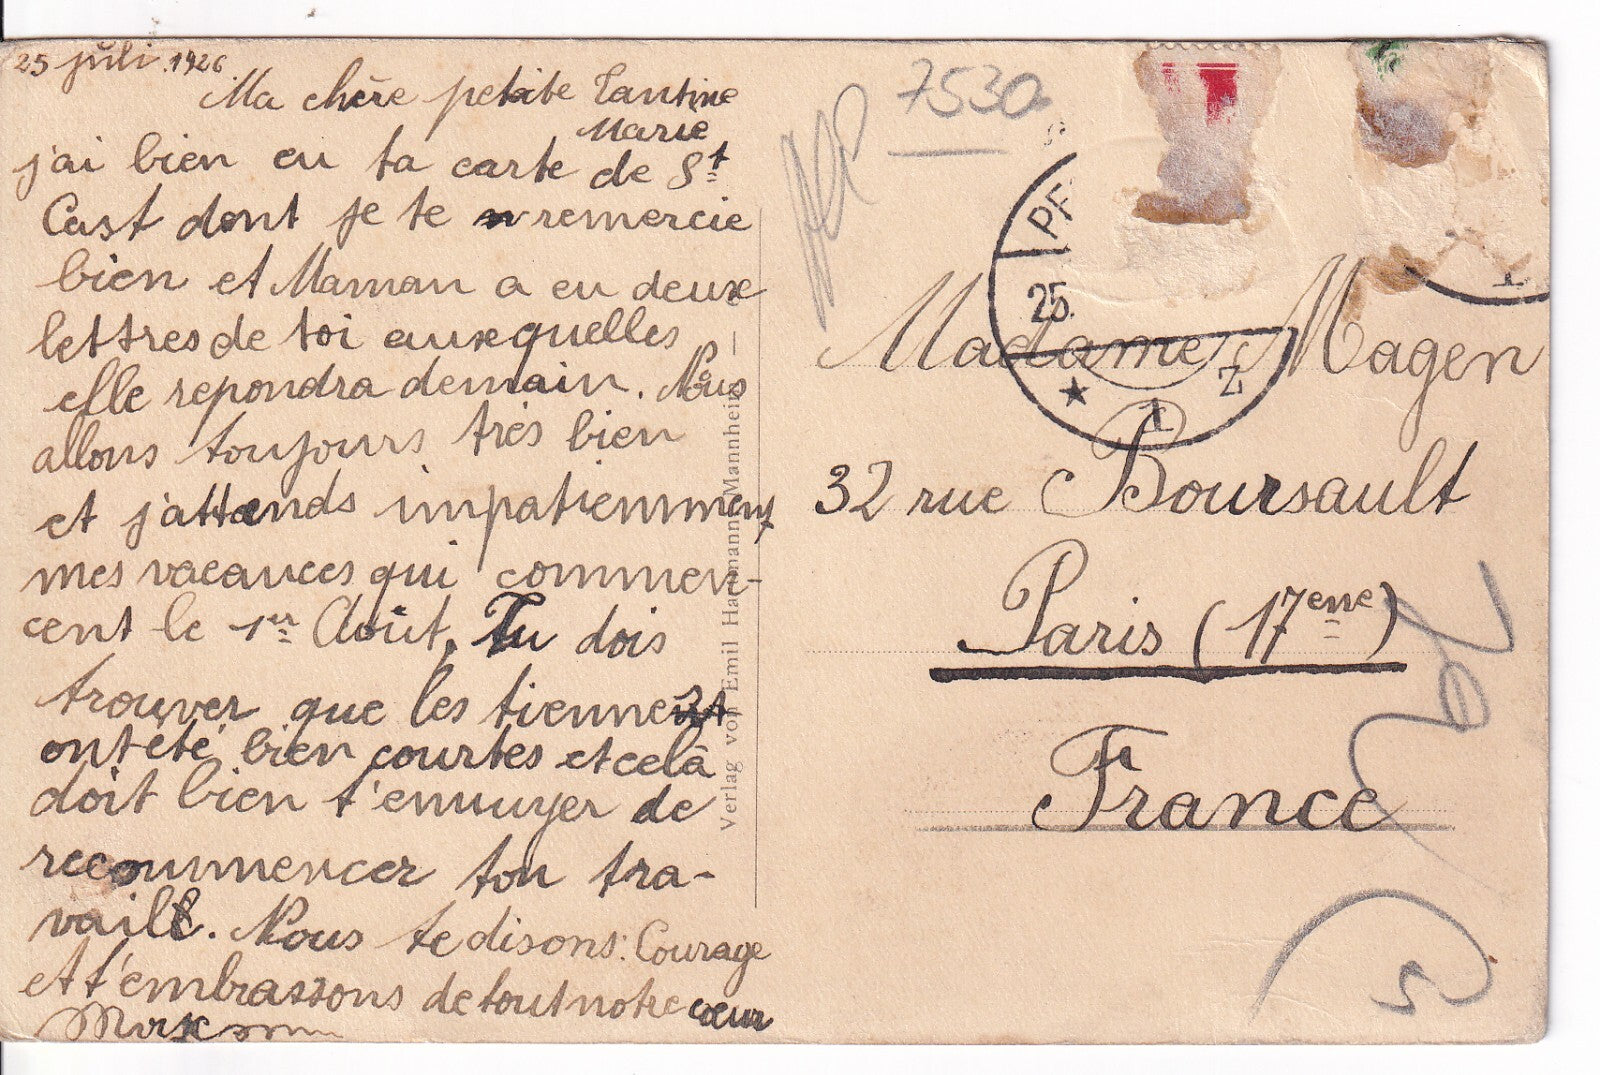 25 juli 1926
Ma chère petite Tantine
Marie
j'ai bien eu ta carte de St
Cast dont je te remercie
bien et Maman a eu deux
lettres de toi auxquelles
elle repondra demain. Nous
allons toujours très bien
et j'attends impatiemment
mes vacances qui commen-
cent le 1er Août. Tu dois
trouver que les tiennes
ont été bien courtes et celà
doit bien t'ennuyer de
recommencer ton tra-
vail. Nous te disons: Courage
et t'embrassons de tout notre cœur
Verlag von Emil Hartmann, Mannheim
7530
PF
25.
★ 1 Z
Madame Magen
32 rue Boursault
Paris (17eme)
France